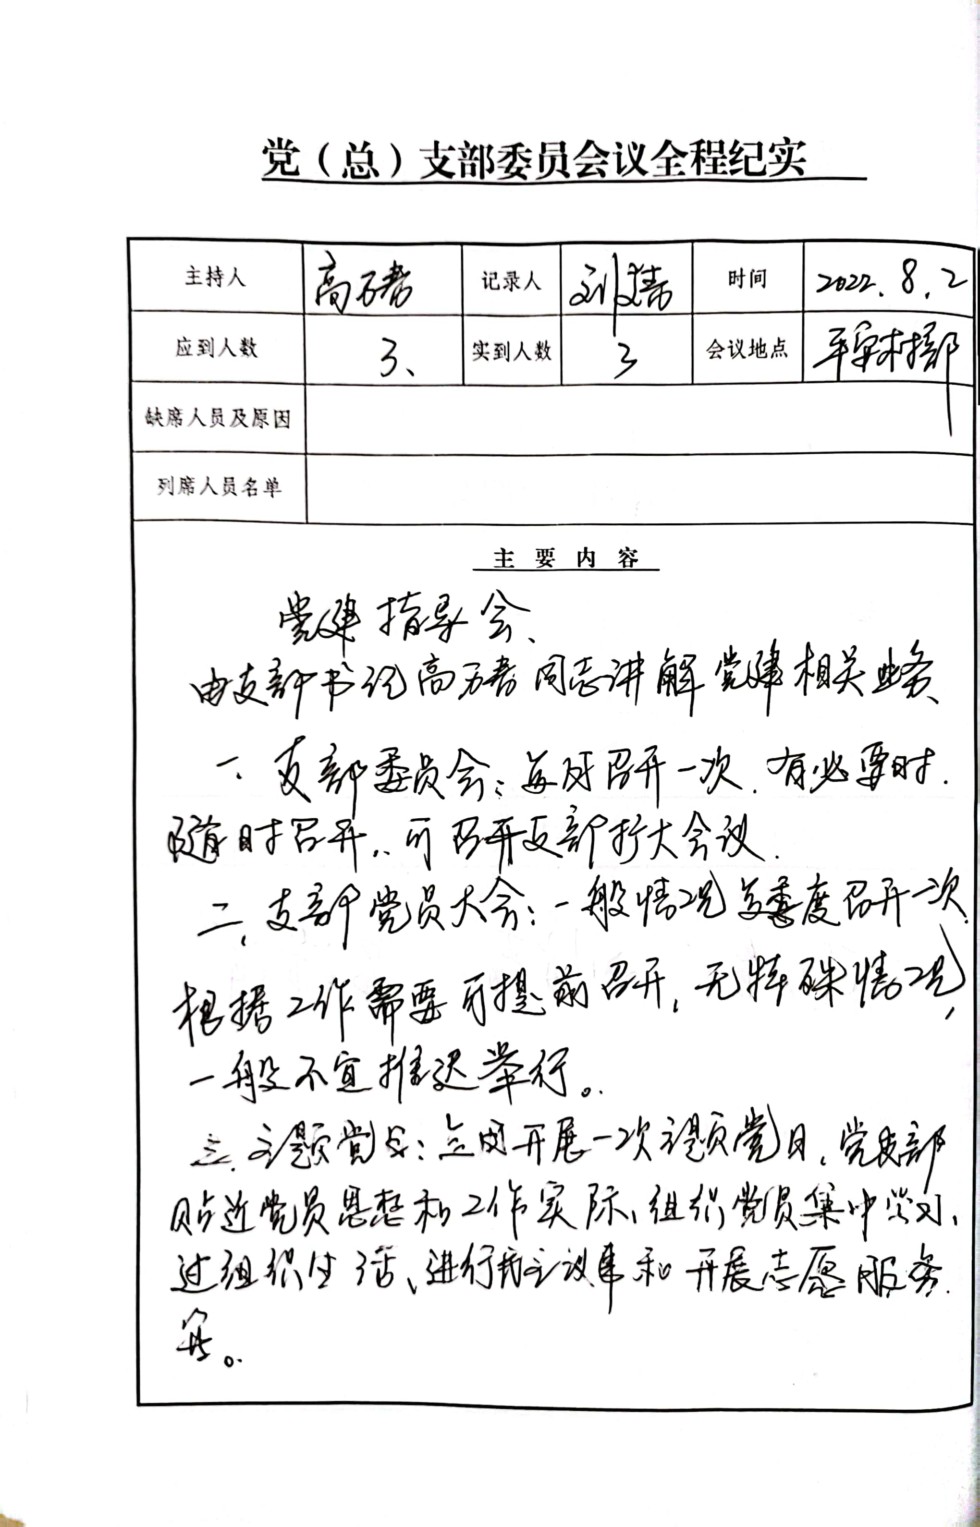 党（总）支部委员会议全程纪实
主持人 高万春 记录人 刘 时间 2022.8.2
应到人数 3、 实到人数 3 会议地点 平安村部
缺席人员及原因
列席人员名单
主要内容
党建指导会、
由支部书记高万春同志讲解党建相关业务
一、支部委员会：每月召开一次.有必要时.
随时召开.、可召开支部扩大会议.
二、支部党员大会：一般情况每季度召开一次.
根据工作需要可提前召开，无特殊情况，
一般不宜推迟举行。
三、主题党日：每月开展一次主题党日，党支部
贴近党员思想和工作实际、组织党员集中学习、
过组织生活、进行民主议事和开展志愿服务
等。